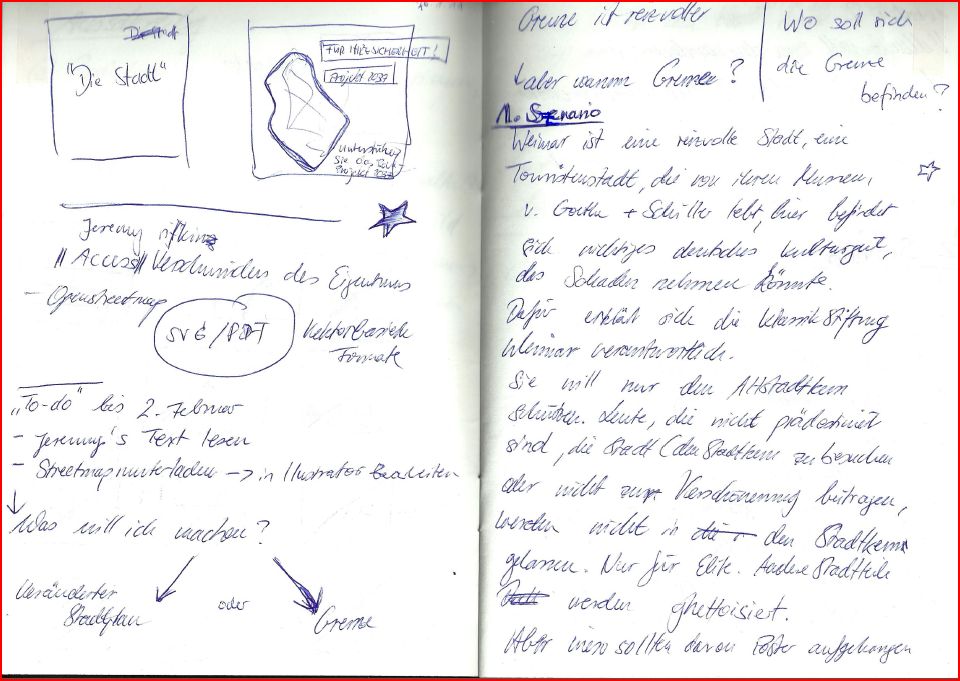 "Die Stadt"
FÜR MEHR SICHERHEIT!
Projekt 2037
unterstützen
Sie das
Projekt 2037
Jeremy rifkin
"Access" Verschwinden des Eigentums
- Openstreetmap
SVG/PDF
Vektorbasierte
Formate
"To-do" bis 2. Februar
- Jeremy's Text lesen
- Streetmap runterladen -> in Illustrator bearbeiten
Was will ich machen?
Veränderter
Stadtplan
oder
Grenze
Grenze ist reizvoller
aber warum Grenzen?
Wo soll sich
die Grenze
befinden?
1. Szenario
Weimar ist eine reizvolle Stadt, eine
Touristenstadt, die von ihren Museen,
v. Goethe + Schiller lebt, hier befindet
sich wichtiges deutsches Kulturgut,
das Schaden nehmen könnte.
Dafür erklärt sich die Klassik Stiftung
Weimar verantwortlich.
Sie will nur den Altstadtkern
schützen. Leute, die nicht prädestiniert
sind, die Stadt (den Stadtkern zu besuchen
oder nicht zur Verschönerung beitragen,
werden nicht in den Stadtkern
gelassen. Nur für Elite. Andere Stadtteile
werden ghettoisiert.
sollten davon Poster aufgehangen